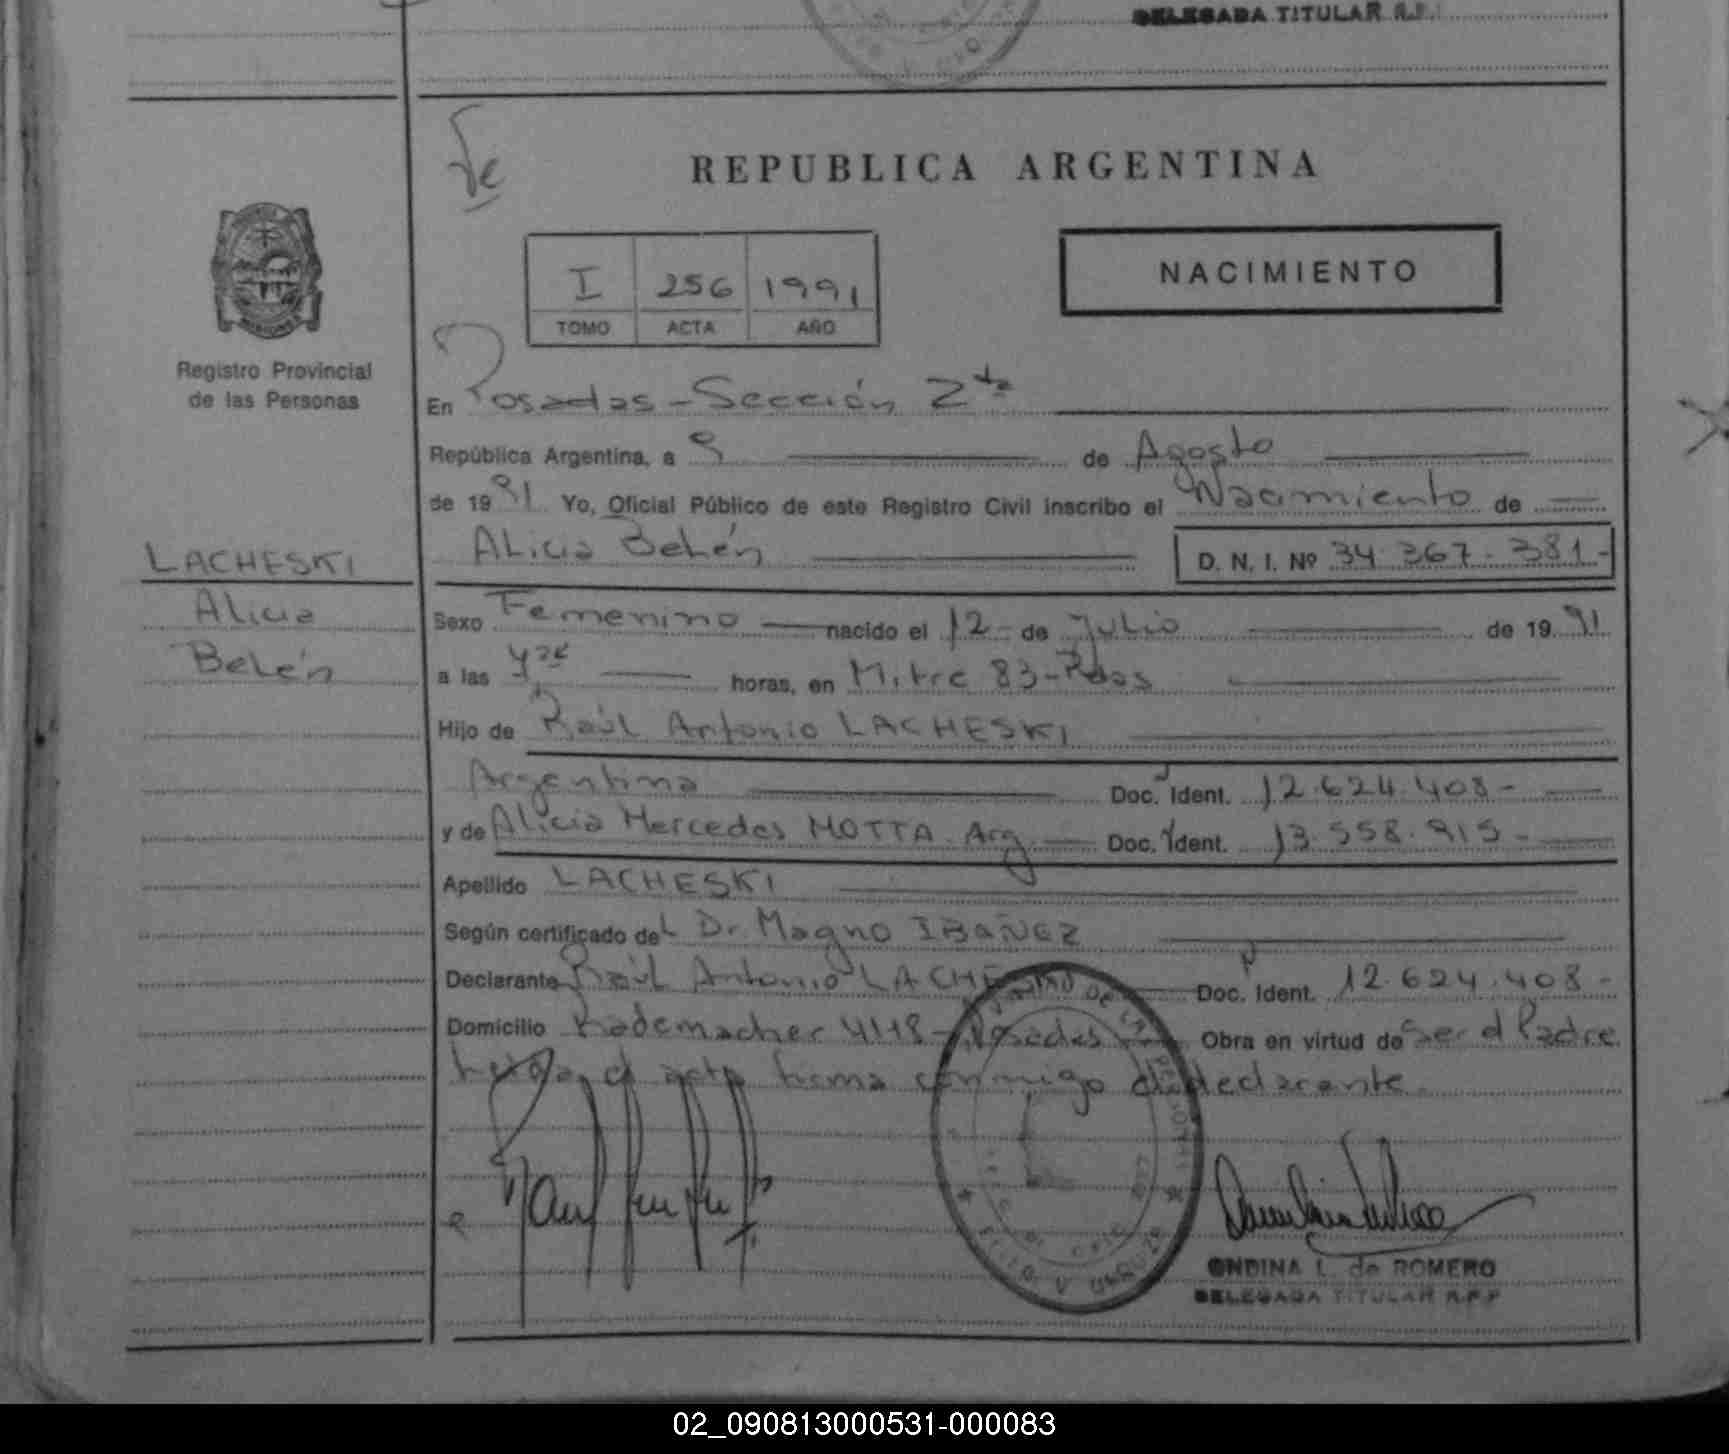 DELEGADA TITULAR R.P.
REPUBLICA ARGENTINA
I 256 1991
TOMO ACTA AÑO
NACIMIENTO
Registro Provincial
de las Personas
En Posadas - Sección 2da
República Argentina, a 9 de Agosto
de 1991 Yo, Oficial Público de este Registro Civil inscribo el Nacimiento de
LACHESKI
Alicia Belén D. N. I. Nº 34.367.381-
Alicia
Belén
Sexo Femenino nacido el 12 - de Julio de 1991
a las horas, en Mitre 83 - Pdas
Hijo de Raúl Antonio LACHESKI
Argentina Doc. Ident. 12.624.408 -
y de Alicia Mercedes MOTTA - Arg. Doc. Ident. 13.558.915 -
Apellido LACHESKI
Según certificado del Dr. Magno IBAÑEZ
Declarante Raúl Antonio LACHESKI Doc. Ident. 12.624.408 -
Domicilio Rademacher 4118 - Posadas Obra en virtud de Ser el Padre
el acta firma conmigo el declarante
ONDINA L. de ROMERO
DELEGADA TITULAR R.P.P
02_090813000531-000083